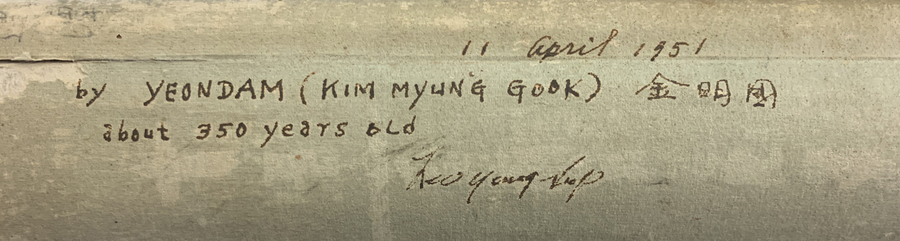 11 April 1951
by YEONDAM (KIM MYUNG GOOK) 金明國
about 350 years old